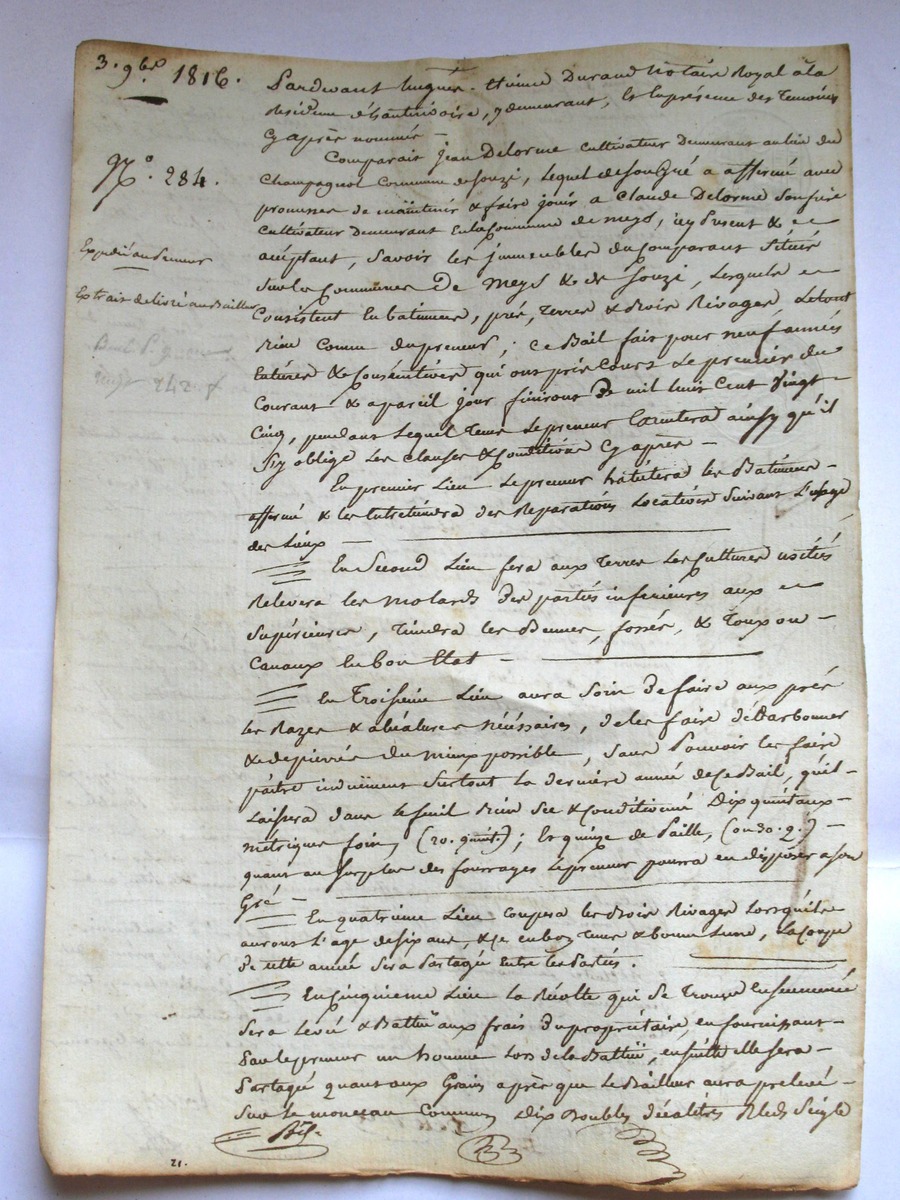 3. 9bre 1816.
N.° 284.
Expédié au Preneur
Extrait delivré au Bailleur
Pardevant hugues-Etienne Durand Notaire Royal à la
Residence y demeurant, Et En présence des Temoins
Cy après nommés —
Comparait jean Delorme cultivateur Demeurant au lieu du
Champagnol Commune de Souzi, Lequel de son Gré a affermé avec
promesse de maintenir & faire jouir a Claude Delorme Son frère
Cultivateur Demeurant En la Commune de meys, icy Présent &
acceptant, Savoir les jmmeubles du Comparant Situés
Sur les Communes De Meys & de Souzi, Lesquels
Consistent En batimens, prés, Terres & Bois Rivages, Le tout
Bien Connu du preneur ; Ce Bail fait pour neuf années
Entières & Consécutives qui ont pris Cours Le premier du
Courant & a pareil jour finiront De mil huit Cent Vingt
Cinq, pendant Lequel Tems Le preneur Exécutera ainsy qu'il
S'y oblige Les Clauses & Conditions Cy après —
En premier Lieu Le preneur habitera les Batimens
affermés & les Entretiendra des Réparations Locatives Suivant L'usage
des Lieux —
En Second Lieu fera aux Terres Les Cultures usitées
Relevera les molards Des parties inférieures aux
Supérieures, Tiendra les Bennes, fossés, & Toux ou
Canaux En bon Etat —
En Troisième Lieu aura Soin De faire aux prés
les Razes & abéalures Nécéssaires, de les faire
& depierrés Du Mieux possible, Sans Pouvoir les faire
paître induëment Surtout La dernière année de ce Bail, qu'il
Laissera dans le fenil Bien Sec & Conditionné Dix quintaux
métriques foin, (20. quint.) ; Et quinze de Paille, (ou 30. q.) —
quant au Surplus des fourrages Le preneur pourra en disposer a son
Gré —
En quatrième Lieu Coupera les Bois Rivages Lorsqu'ils
auront L'age de Six ans, & ce en bon Tems & bonne Lune, La Coupe
De cette année Sera Partagée Entre les Parties.
En Cinquieme Lieu La Récolte qui Se Trouve Ensemencée
Sera Levée & Battuë aux frais Du propriétaire, en fournissant
Par le preneur un homme Lors de la Battuë, ensuitte elle Sera
Partagée quant aux Grains après que Le Bailleur aura prelevé
Sur Le monceau Commun Dix Doubles décalitres Bleds Seigle
21.